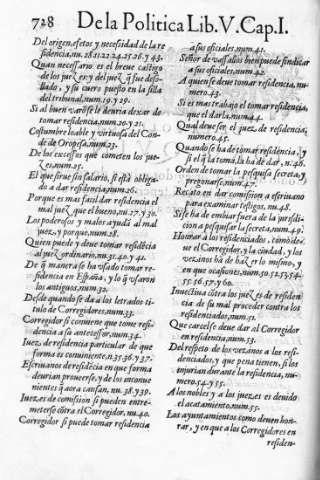 728 De la Politica Lib. V. Cap. I.
Del origen, efetos y necessidad de la re
sidencia, nu. 28.21.22.24.25. & 43.
Quan necessario es el breue castigo
de los juezes: y del juez q̃ fue deso-
llado, y su cuero puesto en la silla
del tribunal, num. 19. y 29.
Si al buen varõ se le deuria dexar de
tomar residencia, num. 20. y 21.
Costumbre loable y virtuosa del Con-
de de Oropesa, num. 23.
De los excessos que cometen los jue-
zes, num. 25.
El que sirue sin salario, si está obliga-
do a dar residencia, num. 26.
Porque es mas facil dar residencia el
mal juez, que el bueno, nu. 27. y 30.
Los poderosos y malos ayudã al mal
juez, y porque, num. 28.
Quien puede y deue tomar residẽcia
al juez ordinario, nu. 31. 40. y 41.
De q̃ manera se ha vsado tomar re-
sidencia en España, y lo q̃ vsaron
los antiguos, num. 32.
Desde quando se da a los letrados ti-
tulo de Corregidores, num. 33.
Corregidor si conuiene que tome resi-
dencia a su antecessor, num. 34.
Iuez de residencia particular de que
forma es conuiniente, n. 35. 36. y 37.
Escriuanos de residẽcia en que forma
deurian proueerse, y de los inconue
nientes q̃ aora causan. nu. 38. y 39.
Iuezes de comissiõ si pueden entre-
meterse cõtra el Corregidor, nu. 40.
Corregidor si puede tomar residencia
a sus oficiales, num. 41.
Señor de vassallos bien puede sindicar
a sus oficiales, num. 42.
A quien se deue tomar residencia, nu-
mero. 43.
Si es mas trabajo el tomar residencia,
que el darla, num. 44.
Qual deue ser el juez de residencia,
numero 45.
Quando se ha de tomar residẽcia, y
si el q̃ la toma, la ha de dar, n. 46.
Orden de tomar la pesquisa secreta, y
pregonarse, num. 47.
Recato en dar comission a escriuano
para examinar testigos, nu. 48.
Si se ha de embiar fuera de la jurisdi-
cion a pesquisar la secreta, num. 49.
Honrar a los residenciados, comõ de-
ue el Corregidor, y la ciudad, y los
vezinos hã de hazer lo mismo, y
en que ocasiones, num. 50. 52. 53. 54.
55. 56. 57. y 60.
Inuectiua cõtra los juezes de residen
cia de su mal proceder contra los
residenciados, num. 51.
Que carcel se deue dar al Corregidor
en residencia, num. 53.
Del respeto de los vezinos a los resi-
denciados, y que pena tienen, si los
injurian durante la residencia, nu-
mero. 54. y 55.
A los nobles y a los juezes es deuido
el acatamiento, num. 55.
Los ayuntamientos como deuen hon-
rar, y en que a los Corregidores en
residen-